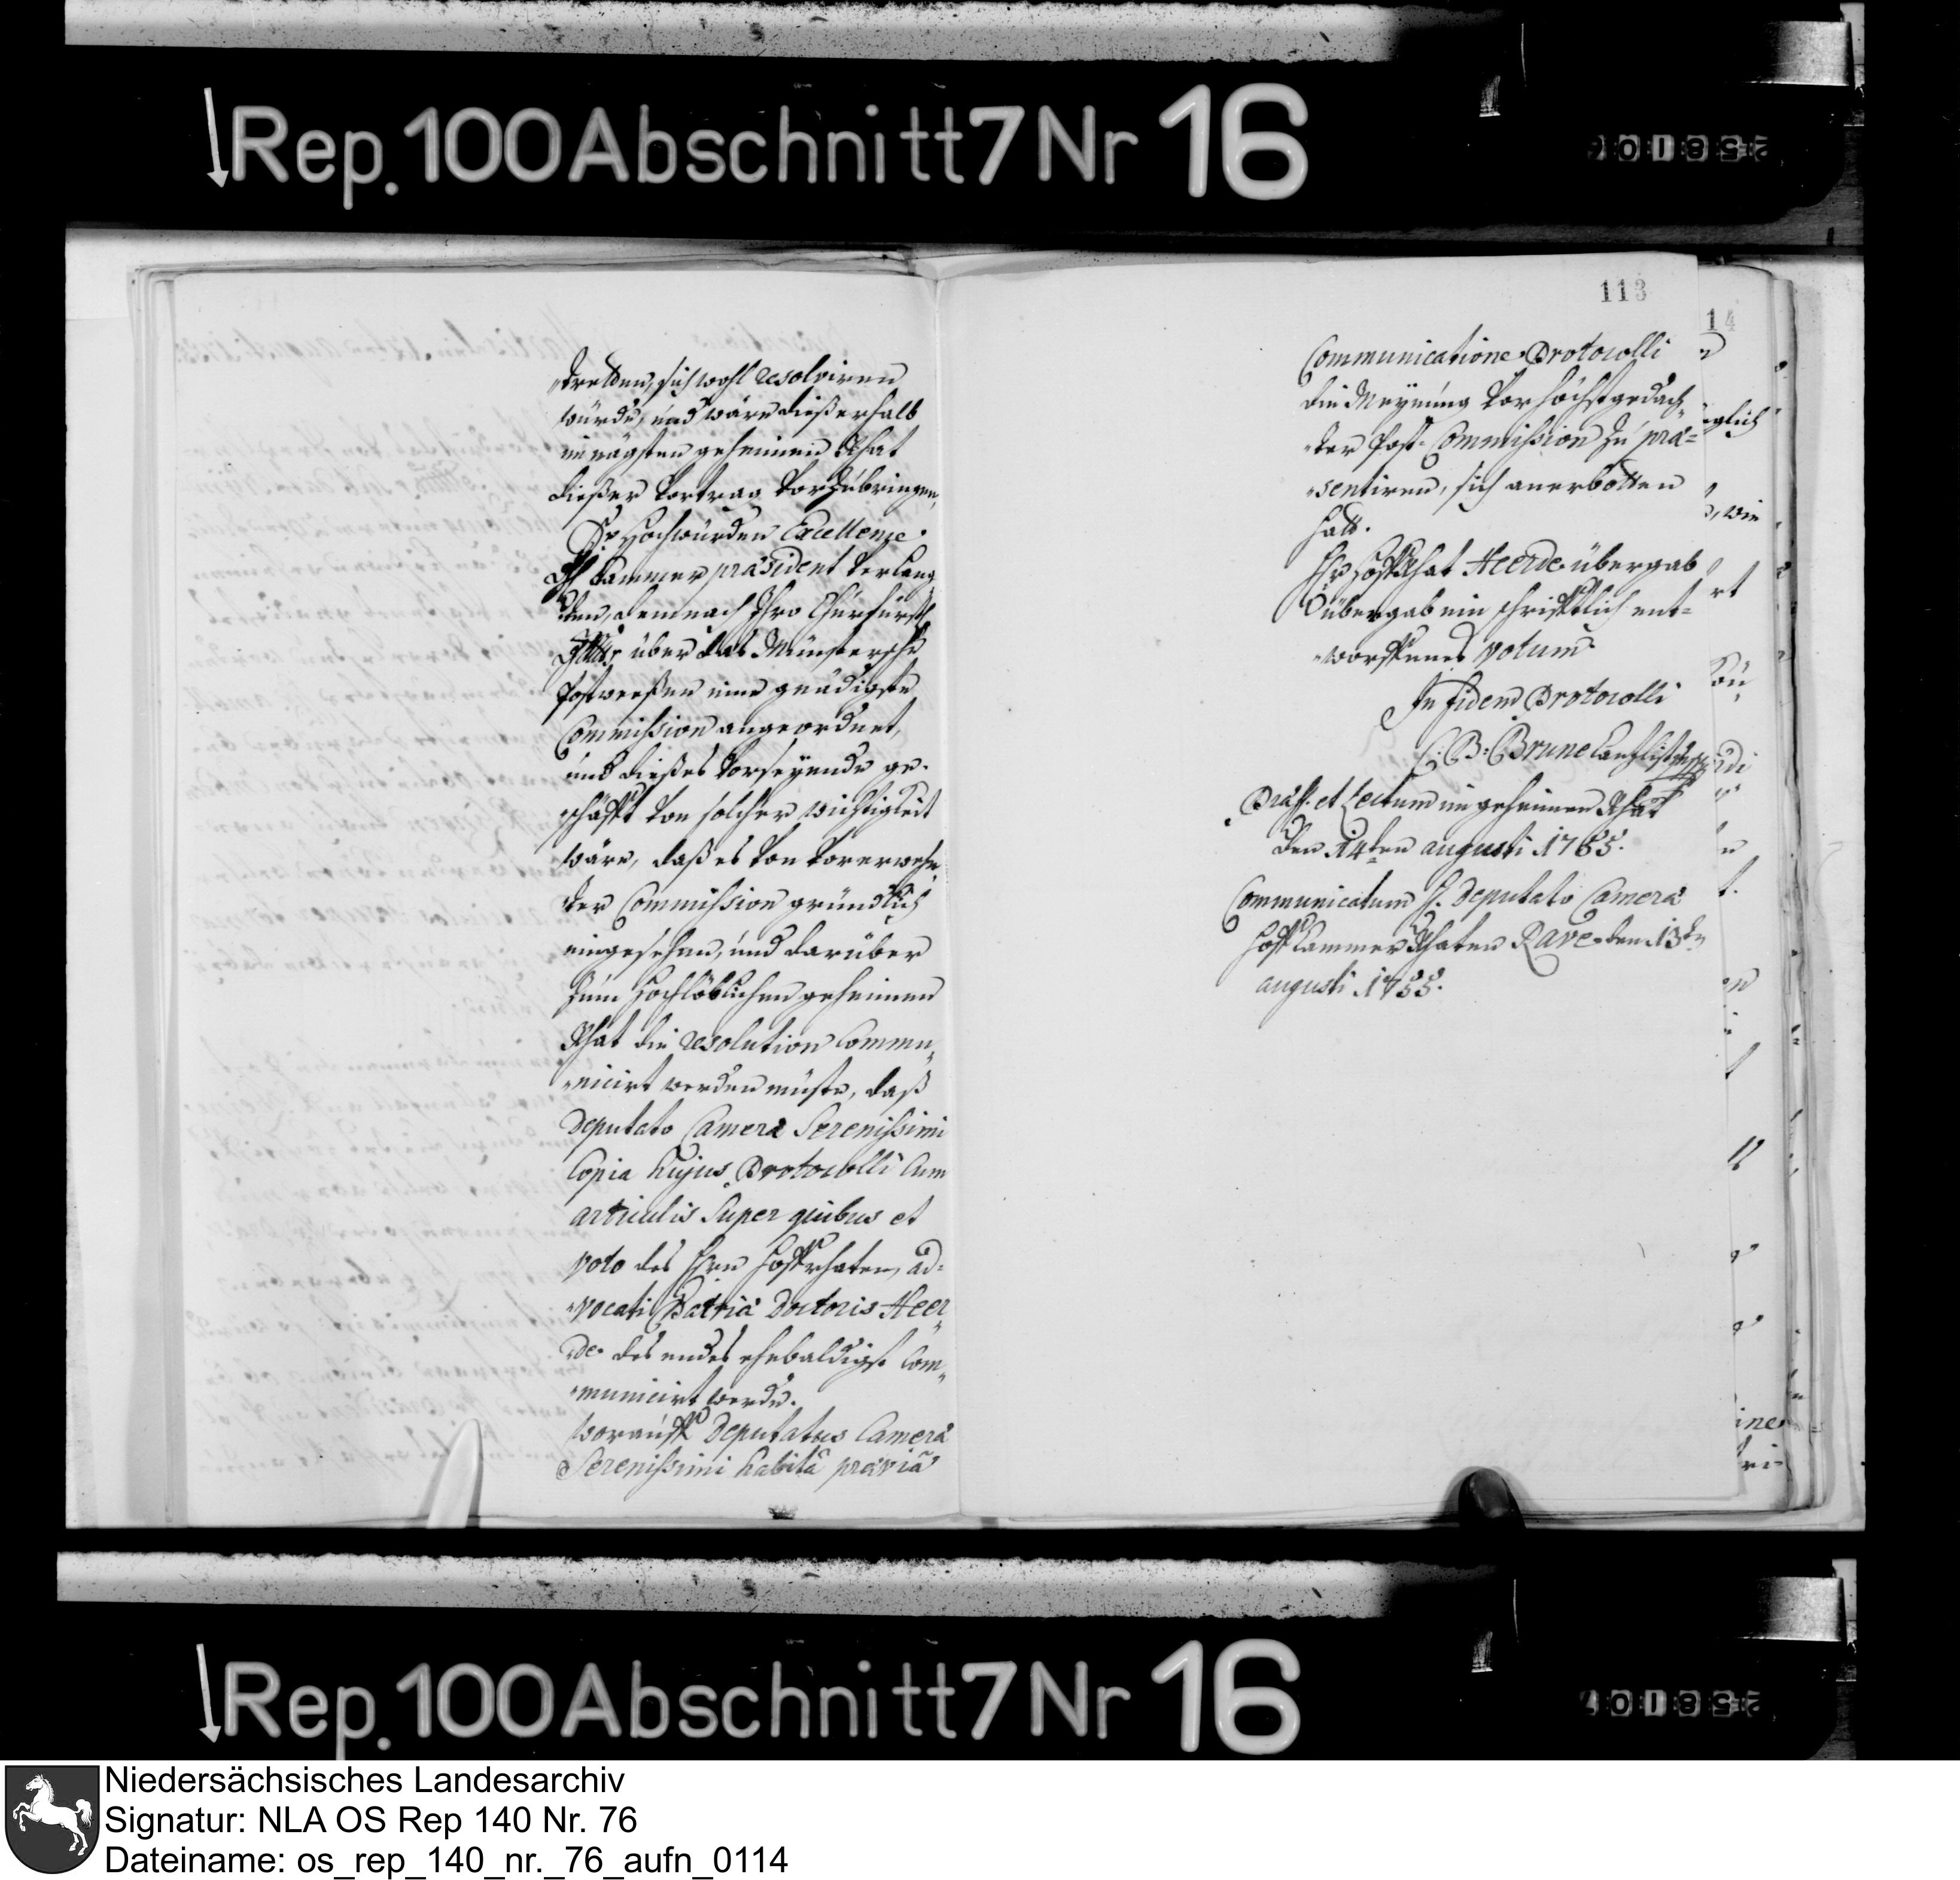 Rep. 100 Abschnitt 7 Nr 16
„tretten, sich wohl resolviren
würde, und wäre dießerhalb
im nägsten geheimen Rhat
dießer Vortrag vorzubringen,
Sr Hochwürden Excellence
H Cammer præsident verlang
ten, demnach Ihro Churfürstl
über das Münstersche
Postweeßen eine gnädigste
Commission angeordnet,
und dießes vorseyende ge-
schäfft von solcher wichtigkeit
wäre, daß es von vorerwehn
ter Commission gründlich
eingesehen, und darüber
zum Hochlöblichen geheimen
Rhat die resolution commu„
„nicirt werden müste, daß
Deputato Cameræ Serenissimi
Copia hujus Protocolli cum
articulis super quibus et
voto des Hrn Hoffrhaten, ad-
„vocati Patriæ Doctoris Heer„
„de des endes ehebaldigst com„
„municirt werde.
worauff Deputatus Cameræ
Serenissimi habitâ præviâ
113
Communicatione Protocolli
die Meynung vor höchstgedach
„ter Post-Commission zu præ=
„sentiren, sich anerbotten
hatt.
Hr Hoffrhat Heerde übergab
übergab ein schrifftlich ent=
„worffenes votum
In fidem Protocolli
C: B: Brune Canzlist
Præs. et Lectum im geheimen Rhat
den 14ten augusti 1755.
Communicatum H. Deputato Cameræ
Hoff Cammer Rhaten Rave den 13t
augusti 1755.
14
Rep. 100 Abschnitt 7 Nr 16
Niedersächsisches Landesarchiv
Signatur: NLA OS Rep 140 Nr. 76
Dateiname: os_rep_140_nr._76_aufn_0114